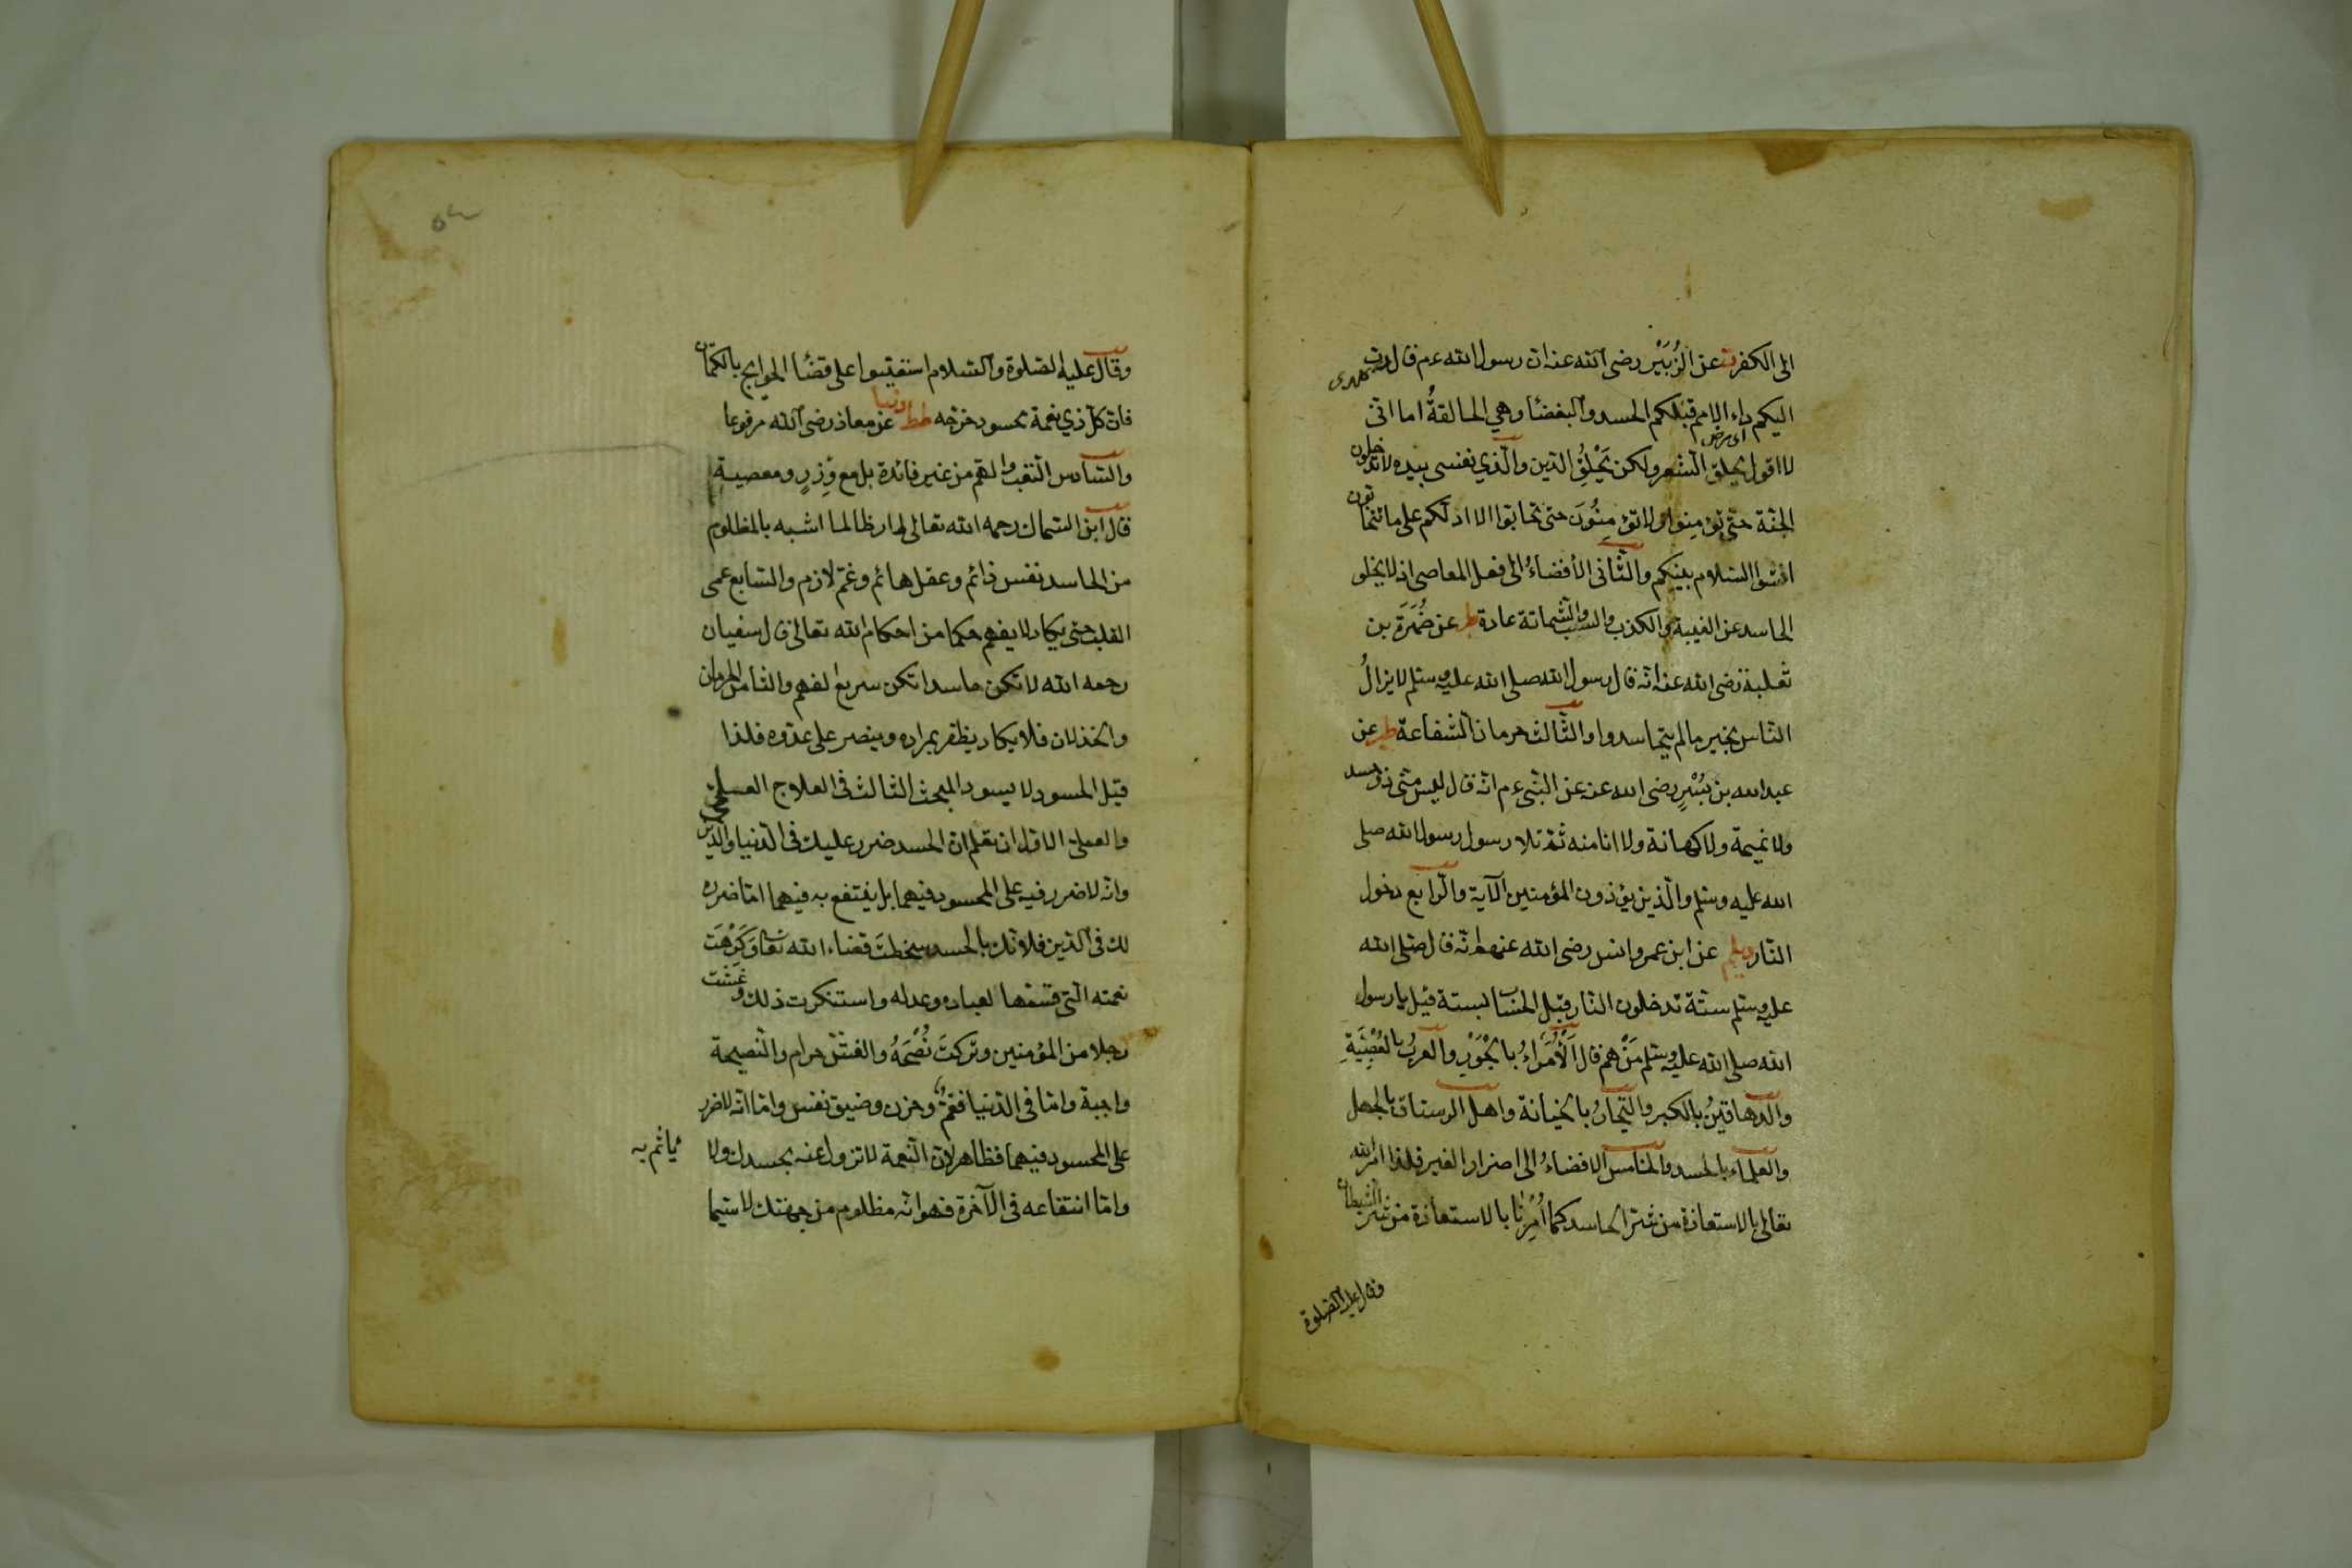 الى الكفر ت عن الزُبَيْر رضى الله عنه ان رسول الله عم قال دب
اليكم داء الامم قبلكم الحسد والبغضا وهي الحالقةُ اما انى
اى مرض
لا اقول يحلق الشعر ولكن يَحْلِقُ الدين والّذي نفسى بيده لا تدخلون
الجنّة حتى تؤمنوا ولا تؤمِنُونَ حتى تحابّوا الا ادلكم على ما تتحابون
افشوا السلام بينكم والثّانى الأفضاءُ الى فعل المعاصى اذ لا يخلو
الحاسد عن الغيبة والكذب والسب والشماتة عادة ط عن ضَمْرَة بن
ثعلبة رضى الله عنه انّه قال رسول الله صلى الله عليه وسلم لا يزالُ
النّاس بخير مالم يتحاسدوا والثّالث حرمان الشفاعة ط عن
عبد الله بن بُسْرٍ رضى الله عنه عن النبّى عم انّه قال ليس منّى ذو حسد
ولا نميمة ولا كهانة ولا انا منه ثمّ تلا رسول رسول الله صلى
الله عليه وسلم والّذين يؤذون المؤمنين الآية والرّابع دخول
النّار ديلم عن ابن عمر وانس رضى الله عنهما انّه قال صلى الله
عليه وسلم ستّة تدخلون النّار قبل الحساب بستة قيل يا رسول
الله صلى الله عليه وسلم مَنْ هم قال اَلْأُمَراءُ بالجَوْرِ والعربُ بالعَصَبِيَّةِ
والدهاقينُ بالكبر والتّجارُ بالخيانة واهل الرستاق بالجهل
والعلماء بالحسد والخامس الافضاءُ الى اضرار الغير فلذا امر الله
تعالى بالاستعاذة من شرّ الحاسد كما اُمِرْنا بالاستعاذة من شرّ الشيطان
وقال عليه الصلوة
وقال عليه الصلوة والسّلام استعينوا على قضا الحوايج بالكتمان
فان كلّ ذي نعمة محسود خرّجه طط ودنيا عن معاذ رضى الله مرفوعا
والسّادس التعب والهم من غير فائدة بل مع وِزرٍ ومعصية
قال ابن السّماك رحمه الله تعالى لم ار ظالما اشبه بالمظلوم
من الحاسد نفس دائم وعقل هائم وغمّ لازم والسّابع عمى
القلب حتى يكاد لا يفهم حكما من احكام الله تعالى قال سفيان
رحمه الله لا تكن حاسدا تكن سريع الفهم والثّامن الحرمان
والخذلان فلا يكاد يظفر بمراده وينصر على عدّوه فلذا
قيل الحسود لا يسود المبحث الثالث فى العلاج العلمى
والعملى الاوّل ان تعلم انّ الحسد ضرر عليك فى الدّنيا والدّين
وانّه لا ضرر فيه على المحسود فيهما بل ينتفع به فيهما امّا ضرره
لك فى الدّين فلانّك بالحسد سخطتَ قضاء الله تعا وَكَرِهْتَ
نعمته الّتى قسمها لعباده وعدله واستنكرت ذلك وغششت
رجلا من المؤمنين وتركتَ نُصْحَهُ والغشّ حرام والنّصيحة
واجبة وامّا فى الدّنيا فغمٌّ وحزن وضيق نفس وامّا انّه لا ضرر
على المحسود فيهما فظاهر لانّ النّعمة لا تزول عنه بحسدك ولا يأثم به
وامّا انتفاعه فى الآخرة فهو انّه مظلوم من جهتك لا سيّما